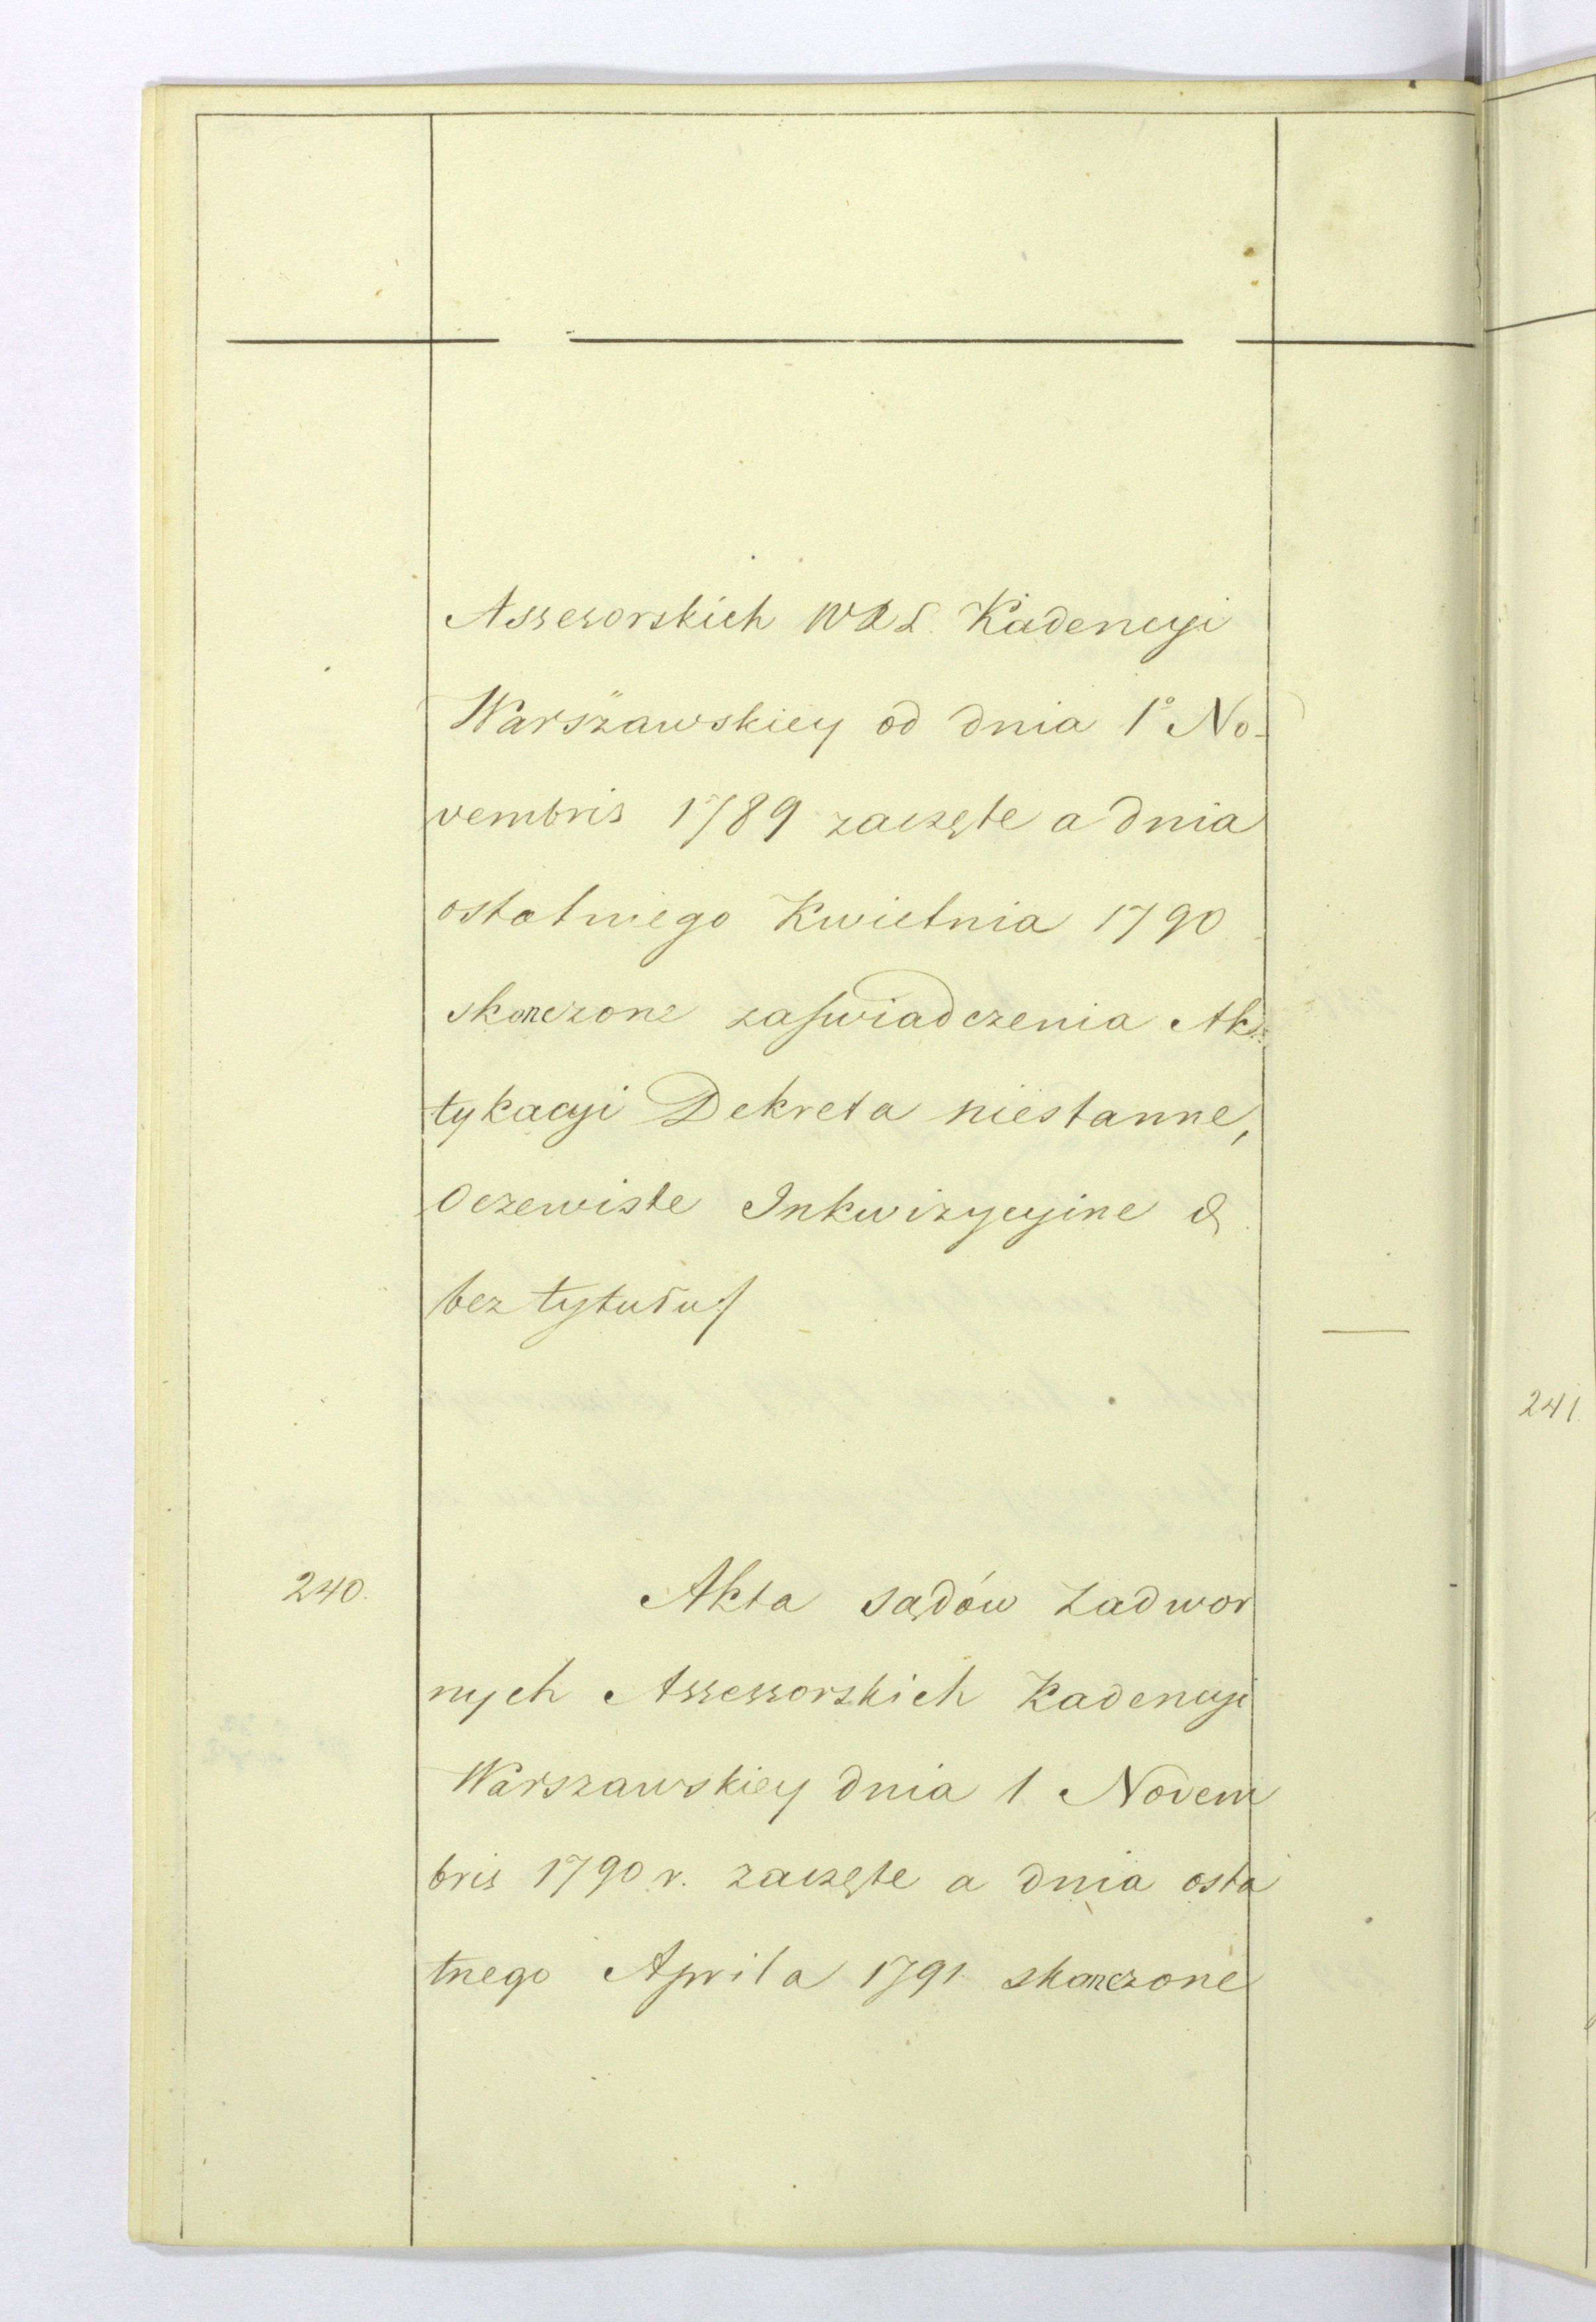 Assesorskich WXL. Kadencyi
Warszawskiey od dnia 1° No-
vembris 1789 zaczęte a dnia
ostatniego Kwietnia 1790
skonczone zaświadczenia Ak-
tykacyi Dekreta niestanne,
Oczewiste Inkwizycyine &
bez tytułu/
240. Akta sądów Zadwor
nych Assessorskich Kadencyi
Warszawskiey dnia 1 Novem
bris 1790 r. zaczęte a dnia osta
tnego Aprila 1791 skonczone
241